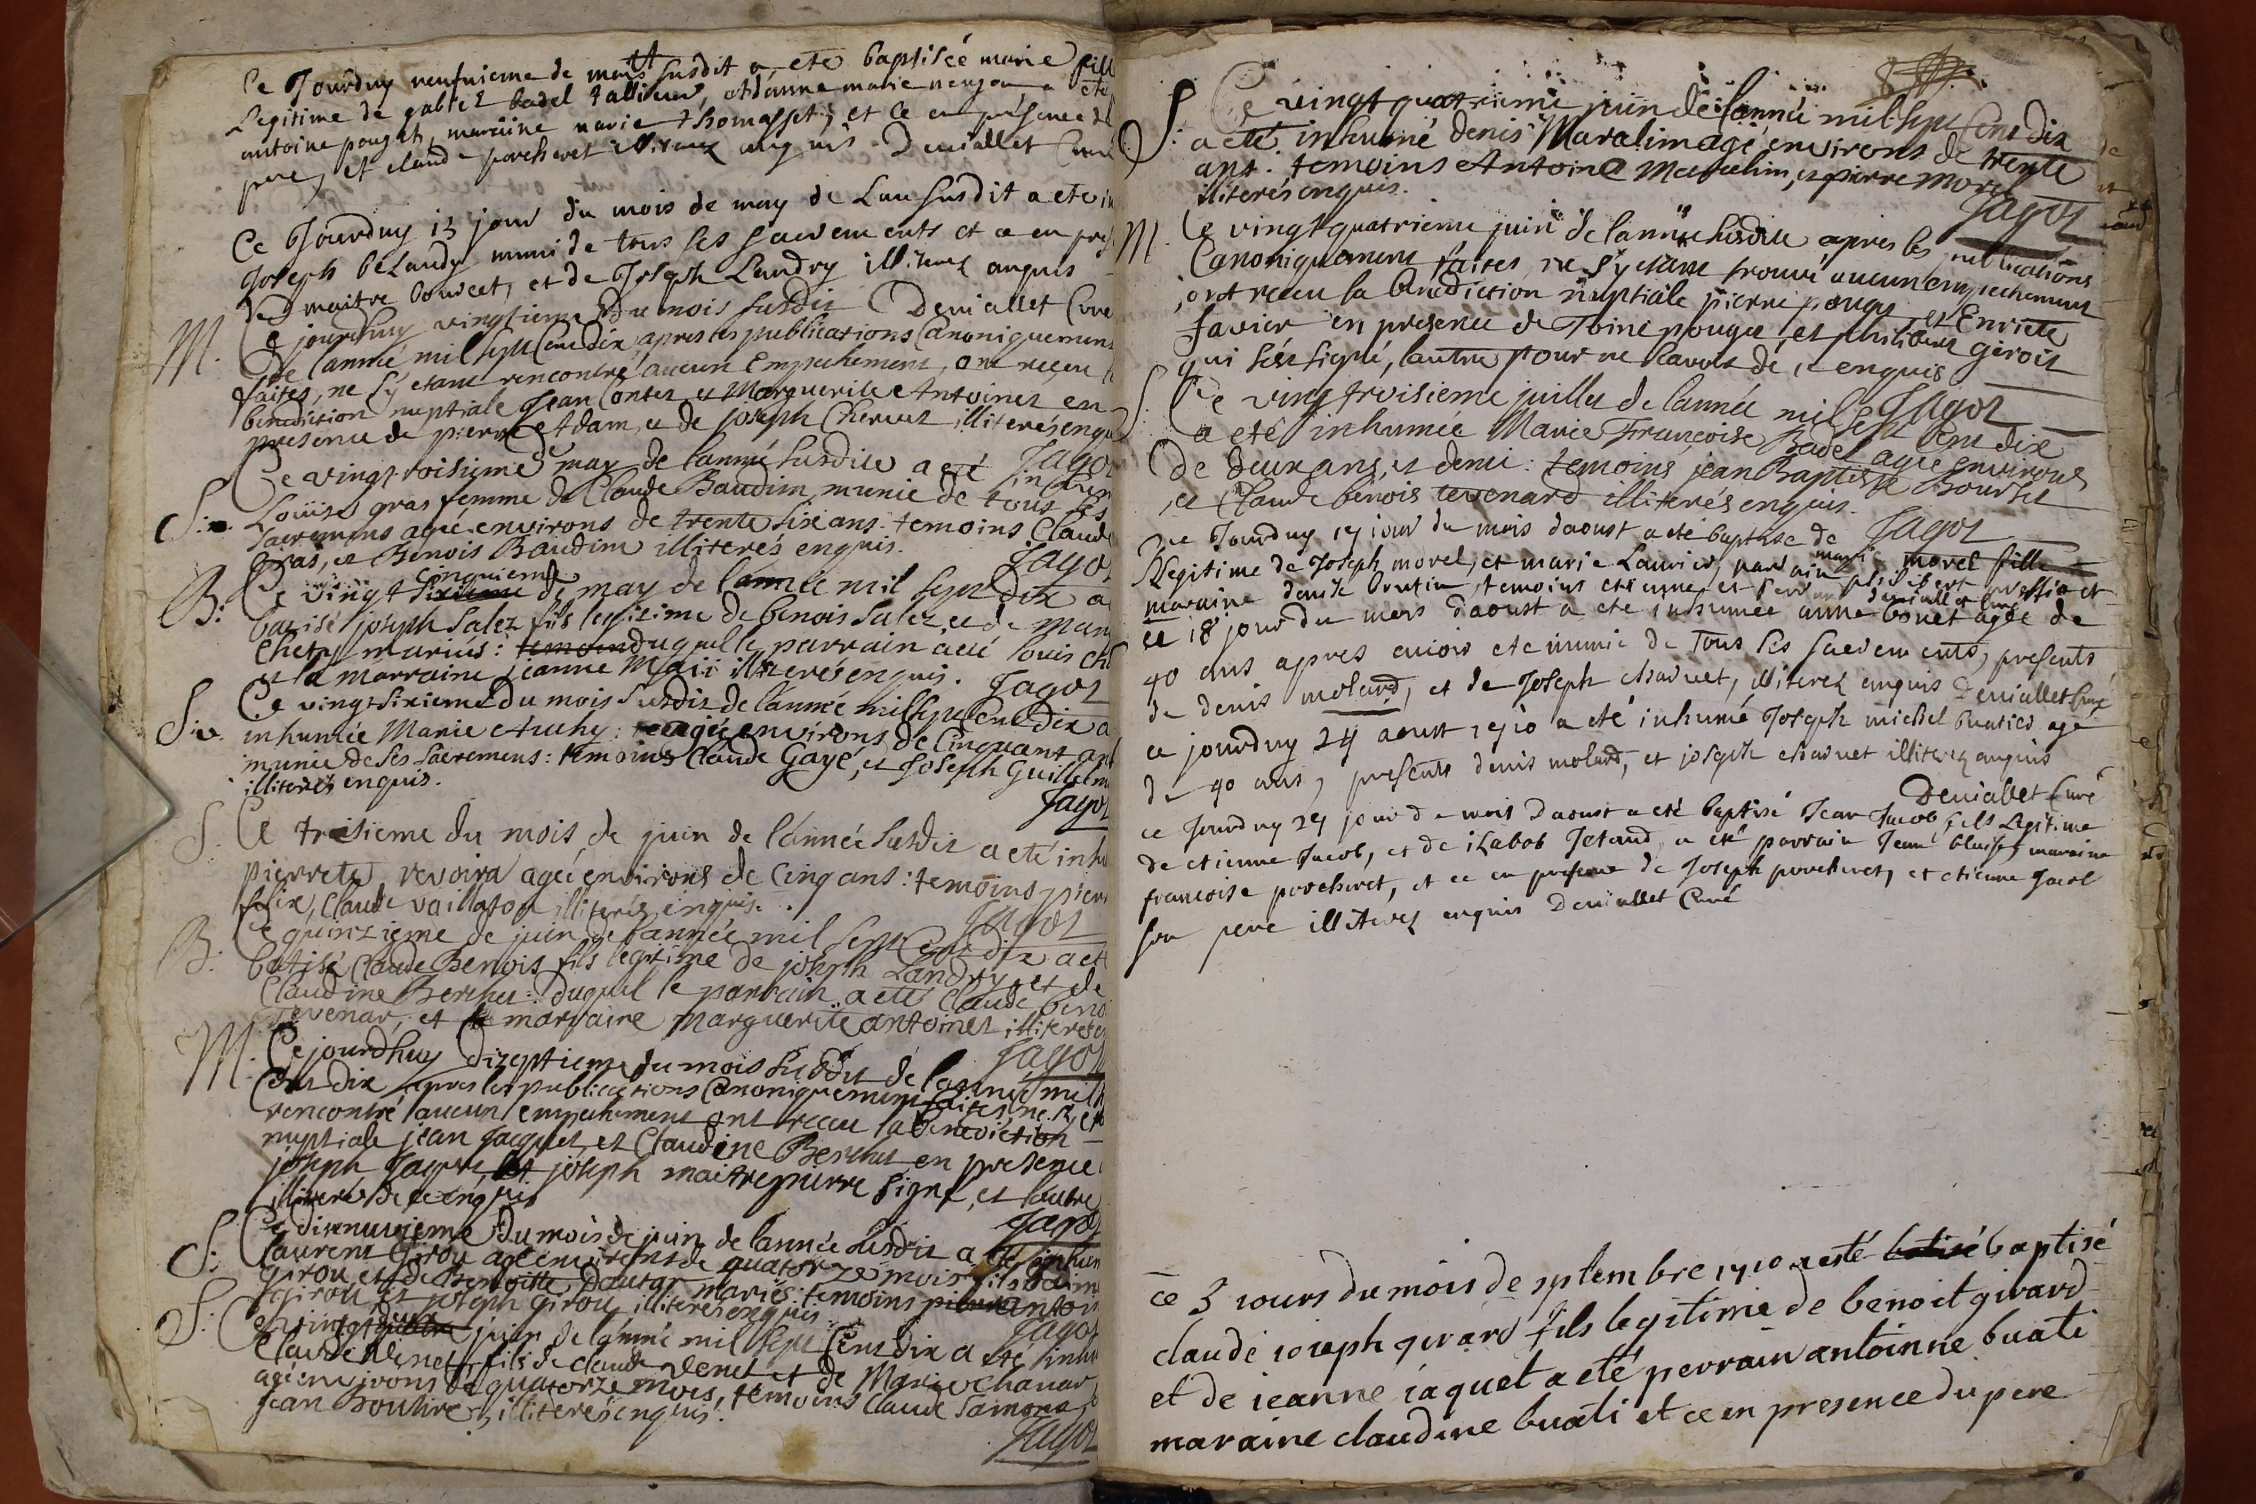 Ce Jourduy neufuieme de mars susdit a ete baptisée marie fill
Legitime de gabriel badel tallieur, et danne marie a ete
antoine pouget, maraine marie thomasset, et ce en présence de
pere, et claude porcheret illiterez anquis. Deniallet Curé
Ce Jourduy 13 jour du mois de may de Lan susdit a ete in
Joseph beLandy muni de tous ses sacrements et ce en pres
de maitre bouvet, et de Joseph Landry illiterez anquis
Deniallet Curé
M. Ce jourdhuy vingtieme du mois susdit
de lannée mil sept cent dix, apres les publications Canoniquement
faites, ne sy etant rencontré aucun empechement, ont reçeu la
benediction nuptiale Jean Contet et Marguerite Antoinet en
presence de pierre Adam, et de joseph Chervet illiterés enquis
Jagot
S. Ce vingt troisieme may de lannée susdite a eté inhumé
Louise gras femme de Claude Baudim munie de tous ses
sacremens agée environs de trente six ans. temoins Claude
Gras, et Benois Baudim illiterés enquis.
Jagot
B: Ce vingt sixieme cinquieme de may de lannée mil sept dix a
batisé joseph Salez fils legitime de benois Salez et de Mar
Chety mariés: temoin duquel le parrain a eté Louis Ch
et la marraine jeanne illiterés enquis. Jagot
S. Ce vingt sixieme du mois susdit de lannée mil sept cent dix a
inhumée Marie Auchy: agée environs de Cinquant ans
munie de ses sacremens: temoins Claude Gayé, et Joseph Guillelm
illiterés enquis.
Jagot
S. Ce troisieme du mois de juin de lannée susdit a eté inhu
pierrete revoira ageé environs de Cinq ans: temoins pierr
felix, Claude vaillaton illiterés enquis.
Jagot
B: Ce quinzieme de juin de lannée mil sept Cent dix a eté
batisé Claude Benois fils légitime de joseph Landry et de
Claudine Berchet: duquel le parrain a eté Claude beno
Tevenar, et la marraine Marguerite antoinet illiterés
Jagot
M. Cejourdhuy dizeptieme du mois susdit de lannée mil s
Cent dix apres les publications Canoniquement faites, ne sy eta
rencontré aucun empechement ont reçeu la benediction
nuptiale jean Jaquet, et Claudine Berchet en presence
joseph Jaquet, et joseph maitrepierre signé, et lautre
illiterés de ce enquis
Jagot
S: Ce dixneuvieme du mois de juin de lannée susdit a eté inhum
Laurent Girou agé environs de quatorze mois fils daim
girou et de Benoiste Dautar mariés: temoins pierre antoi
girou et joseph girou illiterés enquis.
Jagot
S: Ce vingt juin de lannée mil sept Cent dix a eté inhu
Claude Venet, fils de claude Venet et de Marie Chanar
agé environs de quatorze mois, temoins Claude Samona,
Jean Bouthire, illiterés enquis.
Jagot
8
S: Ce vingt quatrieme juin de lannée mil sept Cent dix
a eté inhumé denis Maralim agé environs de trente
ans. temoins Antoine Maralim, et pierre Morel
illiterés enquis.
Jagot
M. Ce vingt quatrieme juin de lannée susdite apres les publications
Canoniquement faites, ne sy etant trouvé aucun empechement
ont reçeu la benediction nuptiale pierre pouget et Enriete
favier en presence de Toine pouget, et philibert girois
qui sest signé, lautre pour ne savoir dé, et enquis
Jagot
S. Ce vingt troisieme juillet de lannée mil sept Cent dix
a eté inhumée Marie Françoise Badel agée environs
de deux ans, et demi: temoins jean Baptiste Bourset
et Claude benois tevenard illiterés enquis.
Jagot
Ce Jourduy 17 jour du mois daoust a eté baptisé de marie morel fille
Legitime de Joseph morel, et marie Laurier, parrain philibert et
maraine denise temoins etienne et Deniallet Curé
Ce 18 jour du mois daoust a ete inhumée anne bonet agée de
40 ans apres avoir ete munie de tous ses sacrements, presents
de denis molard, et de Joseph charuet, illiterez anquis Deniallet Curé
ce jourduy 24 aoust 1710 a eté inhumé Joseph michel buatied agé
de 40 ans, presents denis molard, et joseph charuet illiterez anquis
Deniallet Curé
ce Jourduy 29 jour de mois Daoust a eté baptisé Jean Jacob fils Legitime
de etienne Jacob, et de isabob Jetaud, a eté parrain Jean bluise, maraine
francoise porcheret, et ce en presence de Joseph porcheret, et etienne Jacob
son pere illiterez anquis Deniallet Curé
ce 3 iours du mois de septembre 1710 a esté batisé baptisé
claude ioseph girard fils legitime de benoit girard
et de ieanne iaquet a eté perrain antoinne buati
maraine claudine buati et ce en presence du pere